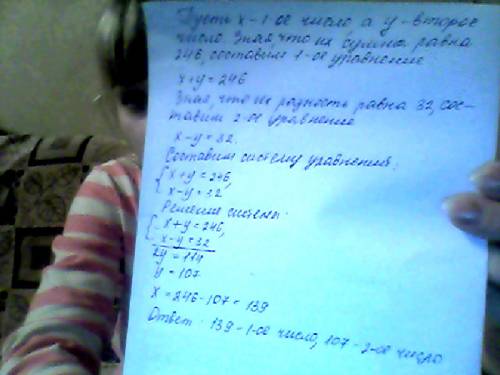 Пусть x - 1-ое число а y - второе
число. Зная, что их сумма равна
246, составим 1-ое уравнение
x+y=246
Зная, что их разность равна 32, сос-
тавим 2-ое уравнение
x-y=32.
Составим систему уравнений:
{ x+y=246,
x-y=32
Решение системы:
{ x+y=246,
x-y=32
2y=214
y=107
x=246-107=139
Ответ: 139 - 1-ое число, 107 - 2-ое число